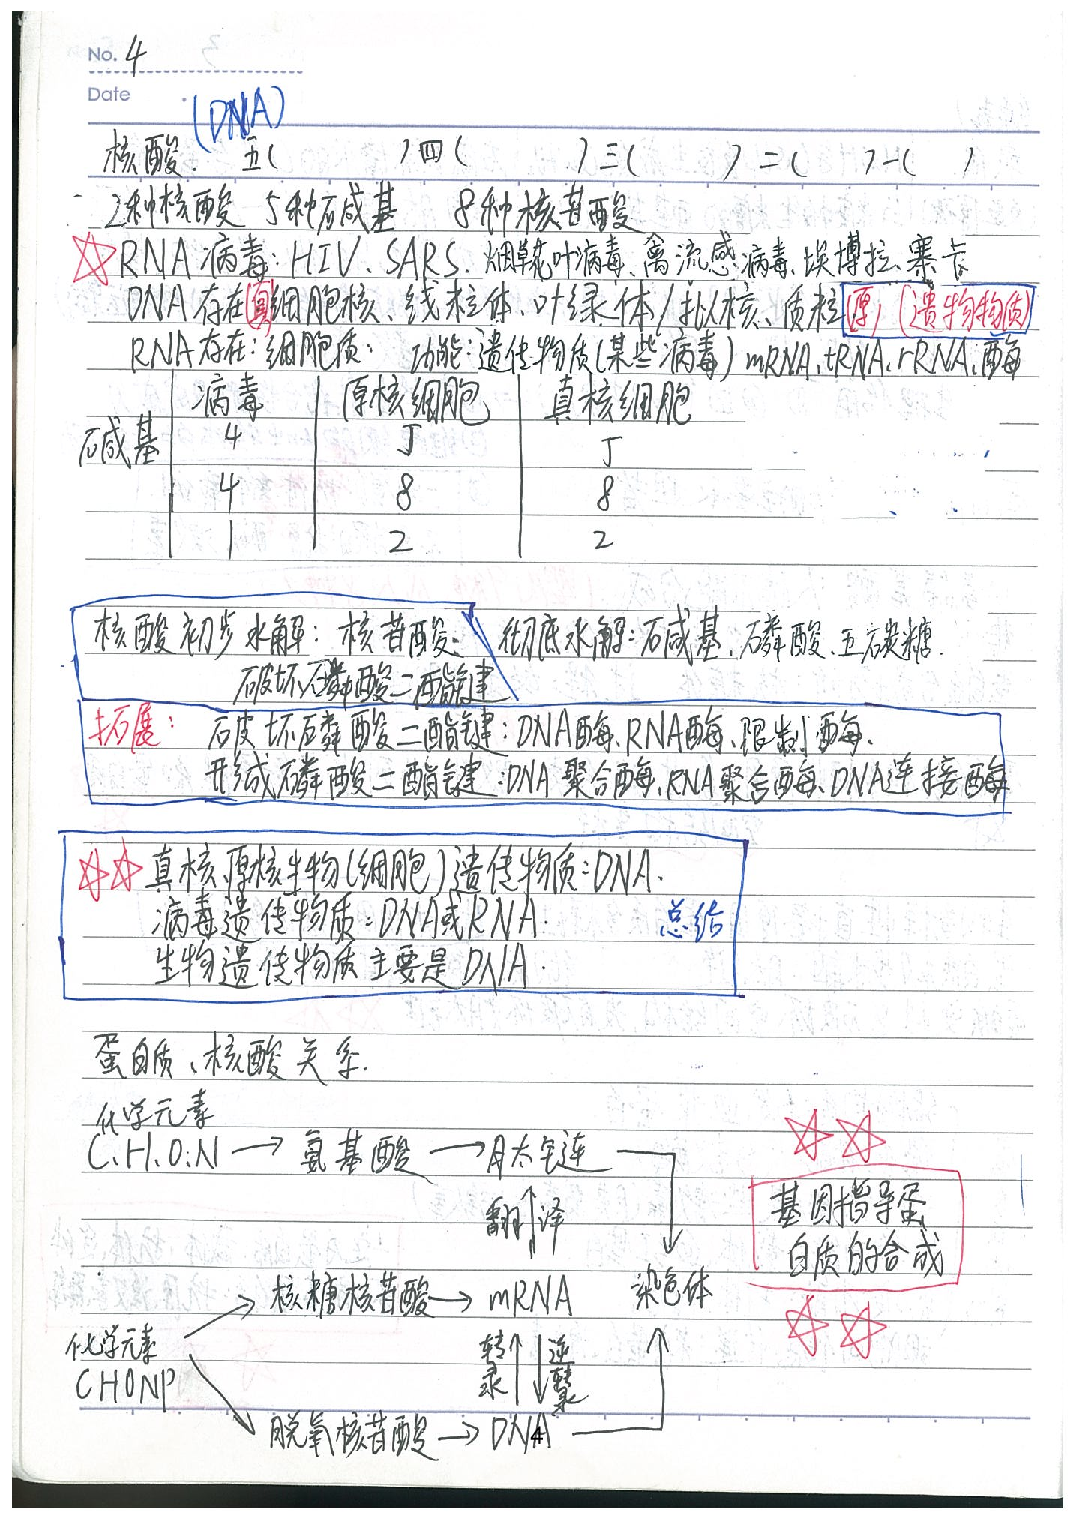 No. 4
Date
(DNA)
核酸. 五( )四( )三( )二( )一( )
2种核酸 5种碱基 8种核苷酸
RNA病毒:HIV、SARS、烟草花叶病毒、禽流感病毒、埃博拉、寨卡
DNA存在(真)细胞核、线粒体、叶绿体/拟核、质粒(原)(遗物物质)
RNA存在:细胞质; 功能:遗传物质(某些病毒)mRNA、tRNA、rRNA、酶
病毒 原核细胞 真核细胞
碱基 4 5 5
4 8 8
1 2 2
核酸初步水解:核苷酸; 彻底水解:碱基、磷酸、五碳糖.
破坏磷酸二酯键
拓展: 破坏磷酸二酯键:DNA酶、RNA酶、限制酶.
形成磷酸二酯键:DNA聚合酶、RNA聚合酶、DNA连接酶
真核、原核生物(细胞)遗传物质:DNA.
病毒遗传物质:DNA或RNA. 总结
生物遗传物质主要是DNA.
蛋白质、核酸关系.
化学元素
C.H.O.N → 氨基酸 → 肽链
翻译
基因指导蛋
白质的合成
核糖核苷酸 → mRNA 染色体
化学元素
CHONP
转录 逆转录
脱氧核苷酸 → DNA
4